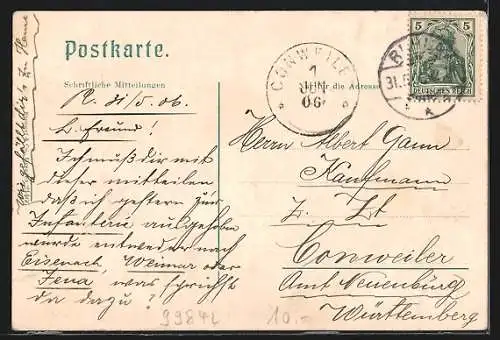 Postkarte.
Schriftliche Mitteilungen
für die Adresse
R. 31/5. 06.
L. Freund!
Ich muß dir mit
dieser mitteilen
daß ich gestern zur
Infanterie ausgehoben
wurde entweder nach
Eisenach, Weimar oder
Jena, was sprichst
da dazu?
Wie gefällt dirs zu Hause
CONWEILER
1
JUN
06
5 5
DEUTSCHES REICH
31.5
Herrn Albert Gann
Kaufmann
z. Zt
Conweiler
Amt Neuenbürg
Württemberg
99842
10.-